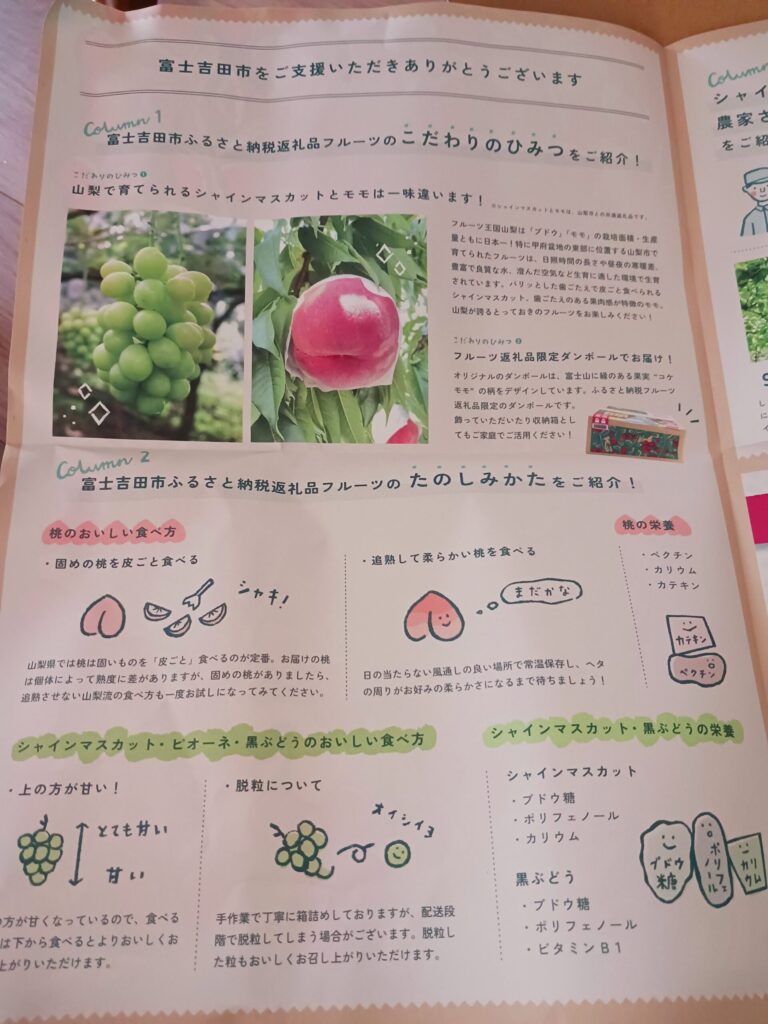 富士吉田市をご支援いただきありがとうございます
Column 1
富士吉田市ふるさと納税返礼品フルーツのこだわりのひみつをご紹介！
こだわりのひみつ❶
山梨で育てられるシャインマスカットとモモは一味違います！
※シャインマスカットとモモは、山梨市との共通返礼品です。
フルーツ王国山梨は「ブドウ」「モモ」の栽培面積・生産
量ともに日本一！特に甲府盆地の東部に位置する山梨市で
育てられたフルーツは、日照時間の長さや昼夜の寒暖差、
豊富で良質な水、澄んだ空気など生育に適した環境で生育
されています。パリッとした歯ごたえで皮ごと食べられる
シャインマスカット、歯ごたえのある果肉感が特徴のモモ。
山梨が誇るとっておきのフルーツをお楽しみください！
こだわりのひみつ❷
フルーツ返礼品限定ダンボールでお届け！
オリジナルのダンボールは、富士山に縁のある果実“コケ
モモ”の柄をデザインしています。ふるさと納税フルーツ
返礼品限定のダンボールです。
飾っていただいたり収納箱とし
てもご家庭でご活用ください！
Column 2
富士吉田市ふるさと納税返礼品フルーツのたのしみかたをご紹介！
桃のおいしい食べ方
・固めの桃を皮ごと食べる
シャキ！
山梨県では桃は固いものを「皮ごと」食べるのが定番。お届けの桃
は個体によって熟度に差がありますが、固めの桃がありましたら、
追熟させない山梨流の食べ方も一度お試しになってみてください。
・追熟して柔らかい桃を食べる
まだかな
日の当たらない風通しの良い場所で常温保存し、ヘタ
の周りがお好みの柔らかさになるまで待ちましょう！
桃の栄養
・ペクチン
・カリウム
・カテキン
カテキン
ペクチン
シャインマスカット・ピオーネ・黒ぶどうのおいしい食べ方
・上の方が甘い！
とても甘い
甘い
方が甘くなっているので、食べる
は下から食べるとよりおいしくお
上がりいただけます。
・脱粒について
オイシイヨ
手作業で丁寧に箱詰めしておりますが、配送段
階で脱粒してしまう場合がございます。脱粒し
た粒もおいしくお召し上がりいただけます。
シャインマスカット・黒ぶどうの栄養
シャインマスカット
・ブドウ糖
・ポリフェノール
・カリウム
黒ぶどう
・ブドウ糖
・ポリフェノール
・ビタミンB1
ブドウ糖
ポリフェノール
カリウム
Column
シャイ
農家さ
をご紹